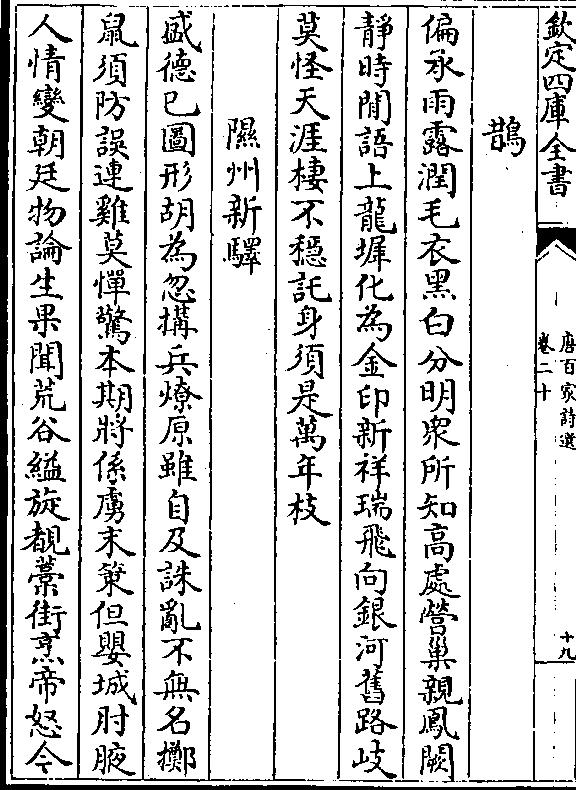 欽定四庫全書
唐百家詩選
卷二十
十九
鵲
偏承雨露潤毛衣黑白分明衆所知高處營巢親鳳闕
靜時閒語上龍墀化為金印新祥瑞飛向銀河舊路岐
莫怪天涯棲不穩託身須是萬年枝
隰州新驛
盛德已圖形胡為忽搆兵燎原雖自及誅亂不無名擲
鼠須防誤連雞莫憚驚本期將係虜末策但嬰城肘腋
人情變朝廷物論生果聞荒谷縊旋覩藁街烹帝怒今